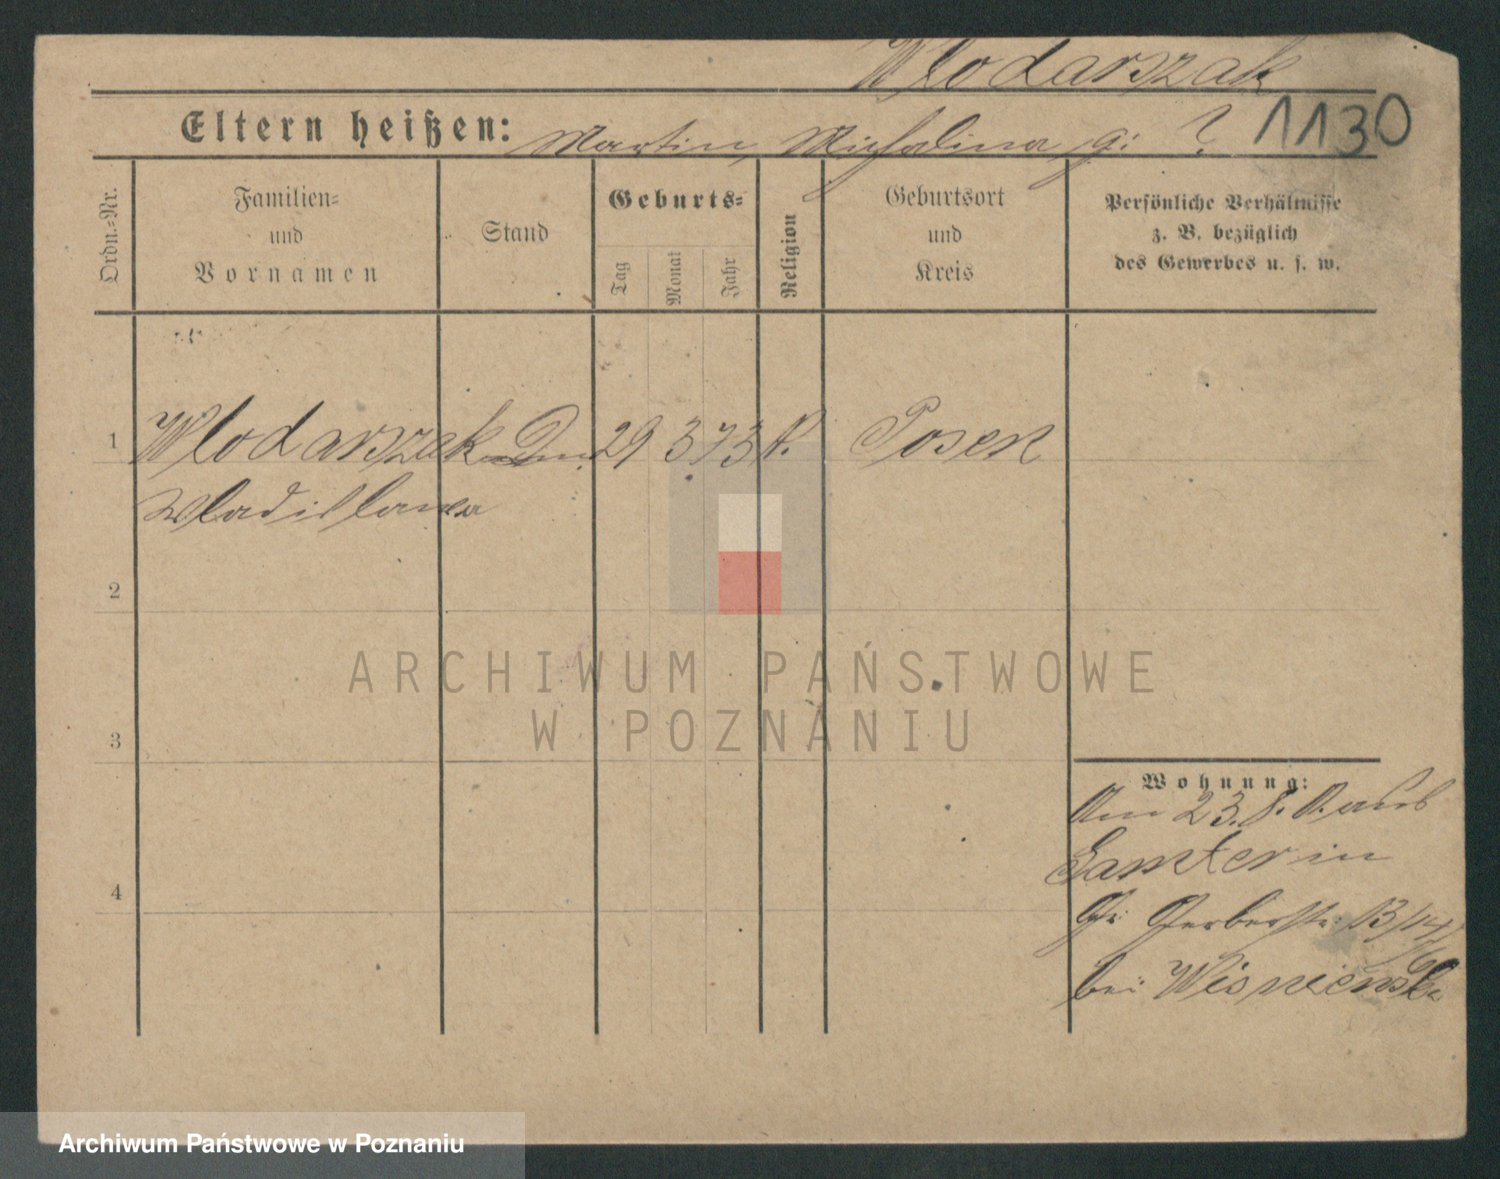 Wlodarszak
Eltern heißen: Martin, Michalina g: ?
1130
Ordn.-Nr.
Familien-
und
Vornamen
Stand
Geburts-
Tag
Monat
Jahr
Religion
Geburtsort
und
Kreis
Persönliche Verhältnisse
z. B. bezüglich
des Gewerbes u. s. w.
1 Wlodarszak 29 3 73 K. Posen
Wladislawa
2
3
4
Wohnung:
Am 23. 8. aus
Samter in
Gr Gerberstr: 13/14
bei Wisniewski
ARCHIWUM PAŃSTWOWE
W POZNANIU
Archiwum Państwowe w Poznaniu